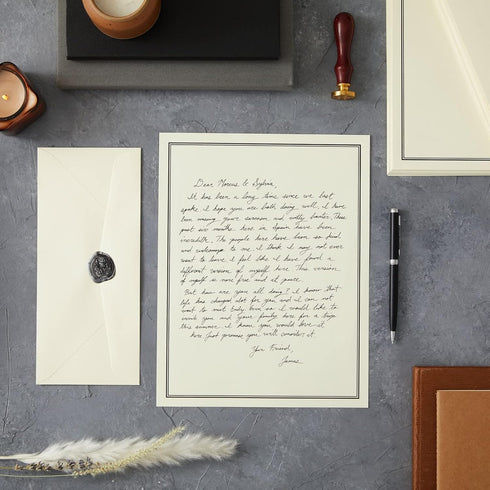 Dear Marcus & Sylvia,
It has been a long time since we last
spoke. I hope you are both doing well. I have
been missing your sarcasm and witty banter. These
past six months here in Spain have been
incredible. The people here have been so kind
and welcoming to me. I think I may not ever
want to leave. I feel like I have found a
different version of myself here. This version
of myself is more free and at peace.
But how are you all doing? I know that
life has changed alot for you and I can not
wait to meet baby Evan so I would like to
invite you and your family here for a trip
this summer. I know you would love it
here. Just promise you will consider it.
Your Friend,
James